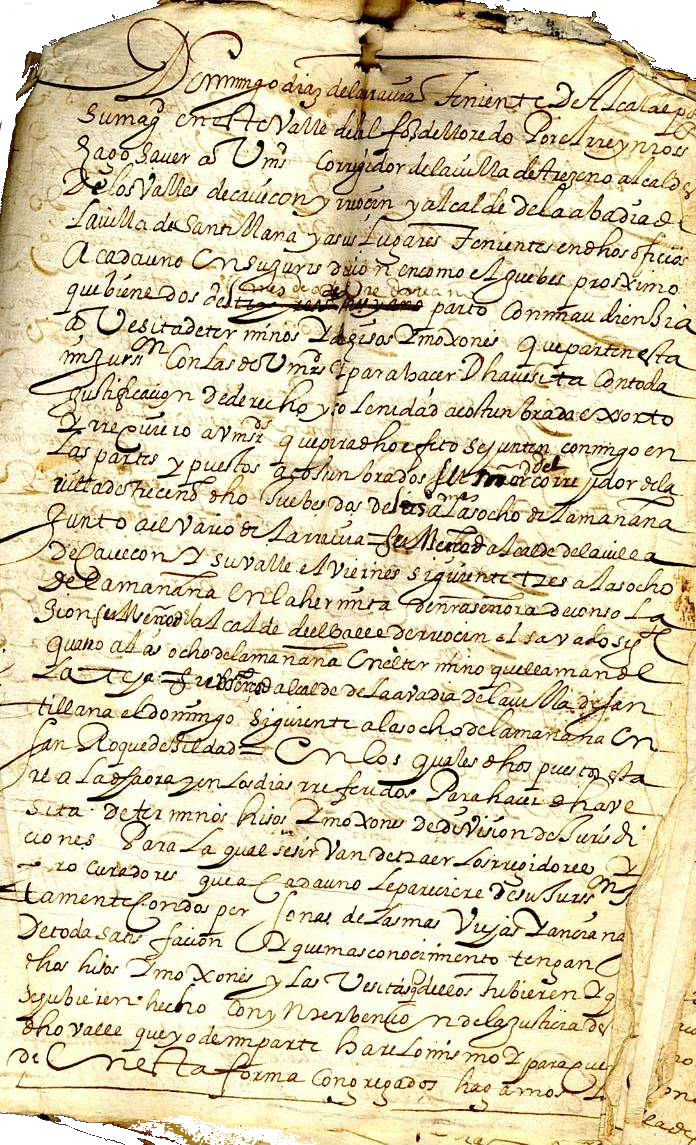 Domingo diaz de Teniente De Alcalde
su magd en este Valle de alfoz de lloredo Por el rrey nros
Hago Saver a Vmds Corregidor de la villa de treceno alcaldes
De los Valles de cavecon y rruocin y alcalde de la abadia de
La villa de Santillana y a sus Lugares Tenientes en dhos oficios
A cada uno En su jurisdicion en como el juebes prosimo
que biene Dos de parto Con mi audiensia
a Vesita de terminos y mojones que parten esta
mi jursin Con las de Vmds y para hacer Dha vesita Con toda
justificacion De derecho y solenidad acostunbrada exorto
y rrequiero a Vmds que para dho efeto se junten conmigo en
Las partes y puestos acostunbrados el señor correjidor de la
villa de treceno dho juebes dos de a las ocho de la mañana
junto a el Vario de Larravia = alcalde de la villa
De Cavecon y su valle el viernes siguiente tres a las ocho
de la mañana En la hermita de nra señora de consola
zion alcalde del Balle de rruocin el savado sigte
quatro a las ocho de la mañana En el termino que llaman de
La teja = alcalde de la avadia de la villa de san
tillana el domingo siguiente a las ocho de la mañana En
San Roque de = En los quales dhos puestos esta
re a la dha ora y en los dias rreferidos Para hacer dha ve
sita de terminos hisos y mojones de devision de jurisdi
ciones Para La qual se sirvan de traer Los rregidores y
procuradores que a Cada uno le pareciere de su jursin
tamente Con dos personas de las mas Viejas y anciana
De toda satisfacion y que mas conocimiento tengan
dhos hisos y mojones y las Vesitas q dellos Tubieren y q
se ubieren hecho Con ynterbencion de la justicia de
dho valle que yo de mi parte hare Lo mismo y para que
de En esta forma Congregados hagamos